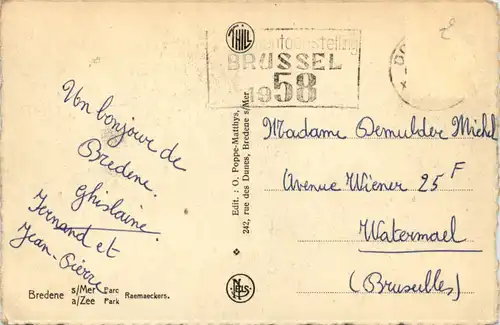 THILL
BRUSSEL
1958
Un bonjour de
Bredene.
Ghislaine
Fernand et
Jean-Pierre
Bredene s/Mer Parc Raemaeckers.
a/Zee Park
Edit. : O. Poppe-Matthys,
242, rue des Dunes, Bredene s/Mer
NELS
Madame Demulder Michel
Avenue Wiener 25 F
Watermael
(Bruxelles)